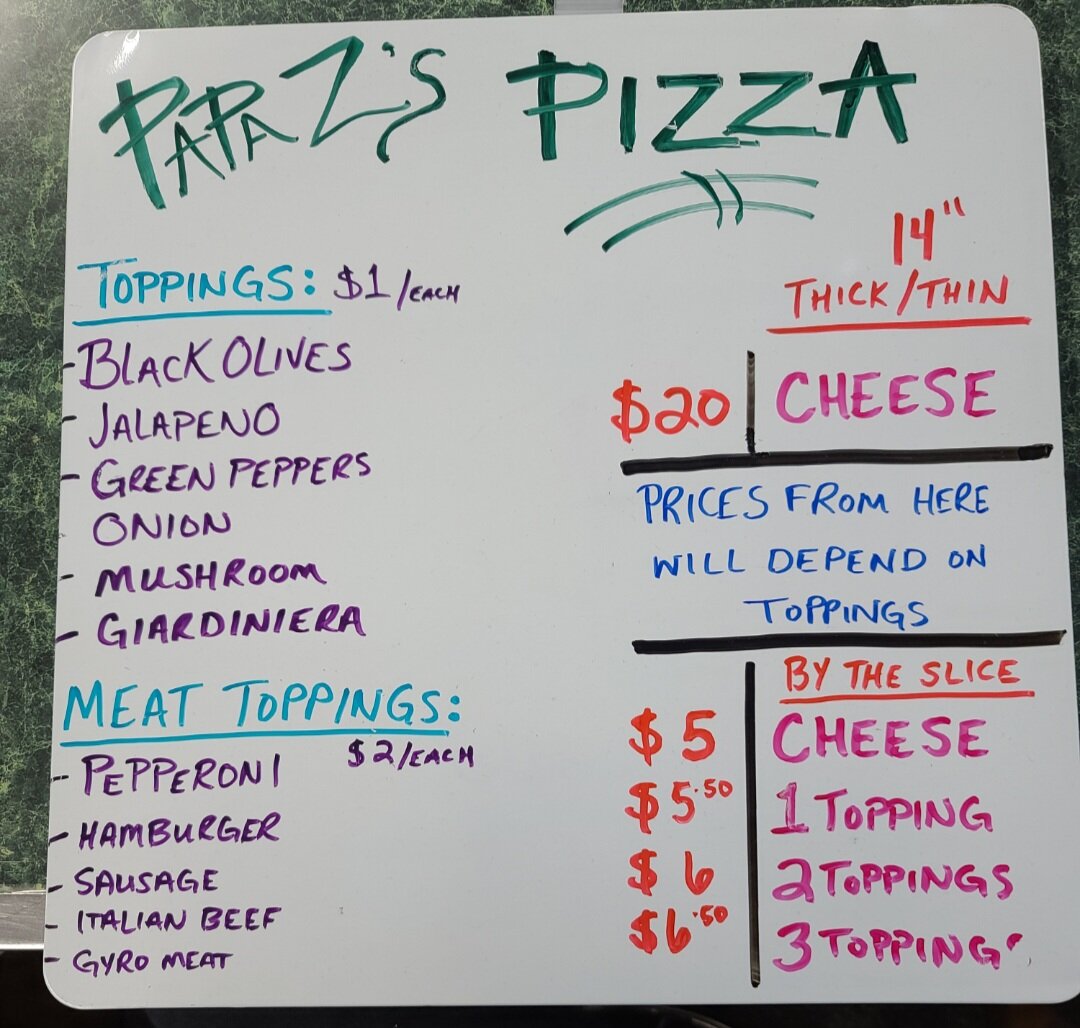 PAPA Z'S PIZZA
TOPPINGS: $1/EACH
- BLACK OLIVES
- JALAPENO
- GREEN PEPPERS
ONION
- MUSHROOM
- GIARDINIERA
MEAT TOPPINGS:
$2/EACH
- PEPPERONI
- HAMBURGER
- SAUSAGE
- ITALIAN BEEF
- GYRO MEAT
14"
THICK/THIN
$20 CHEESE
PRICES FROM HERE
WILL DEPEND ON
TOPPINGS
BY THE SLICE
$5 CHEESE
$5.50 1 TOPPING
$6 2 TOPPINGS
$6.50 3 TOPPING'